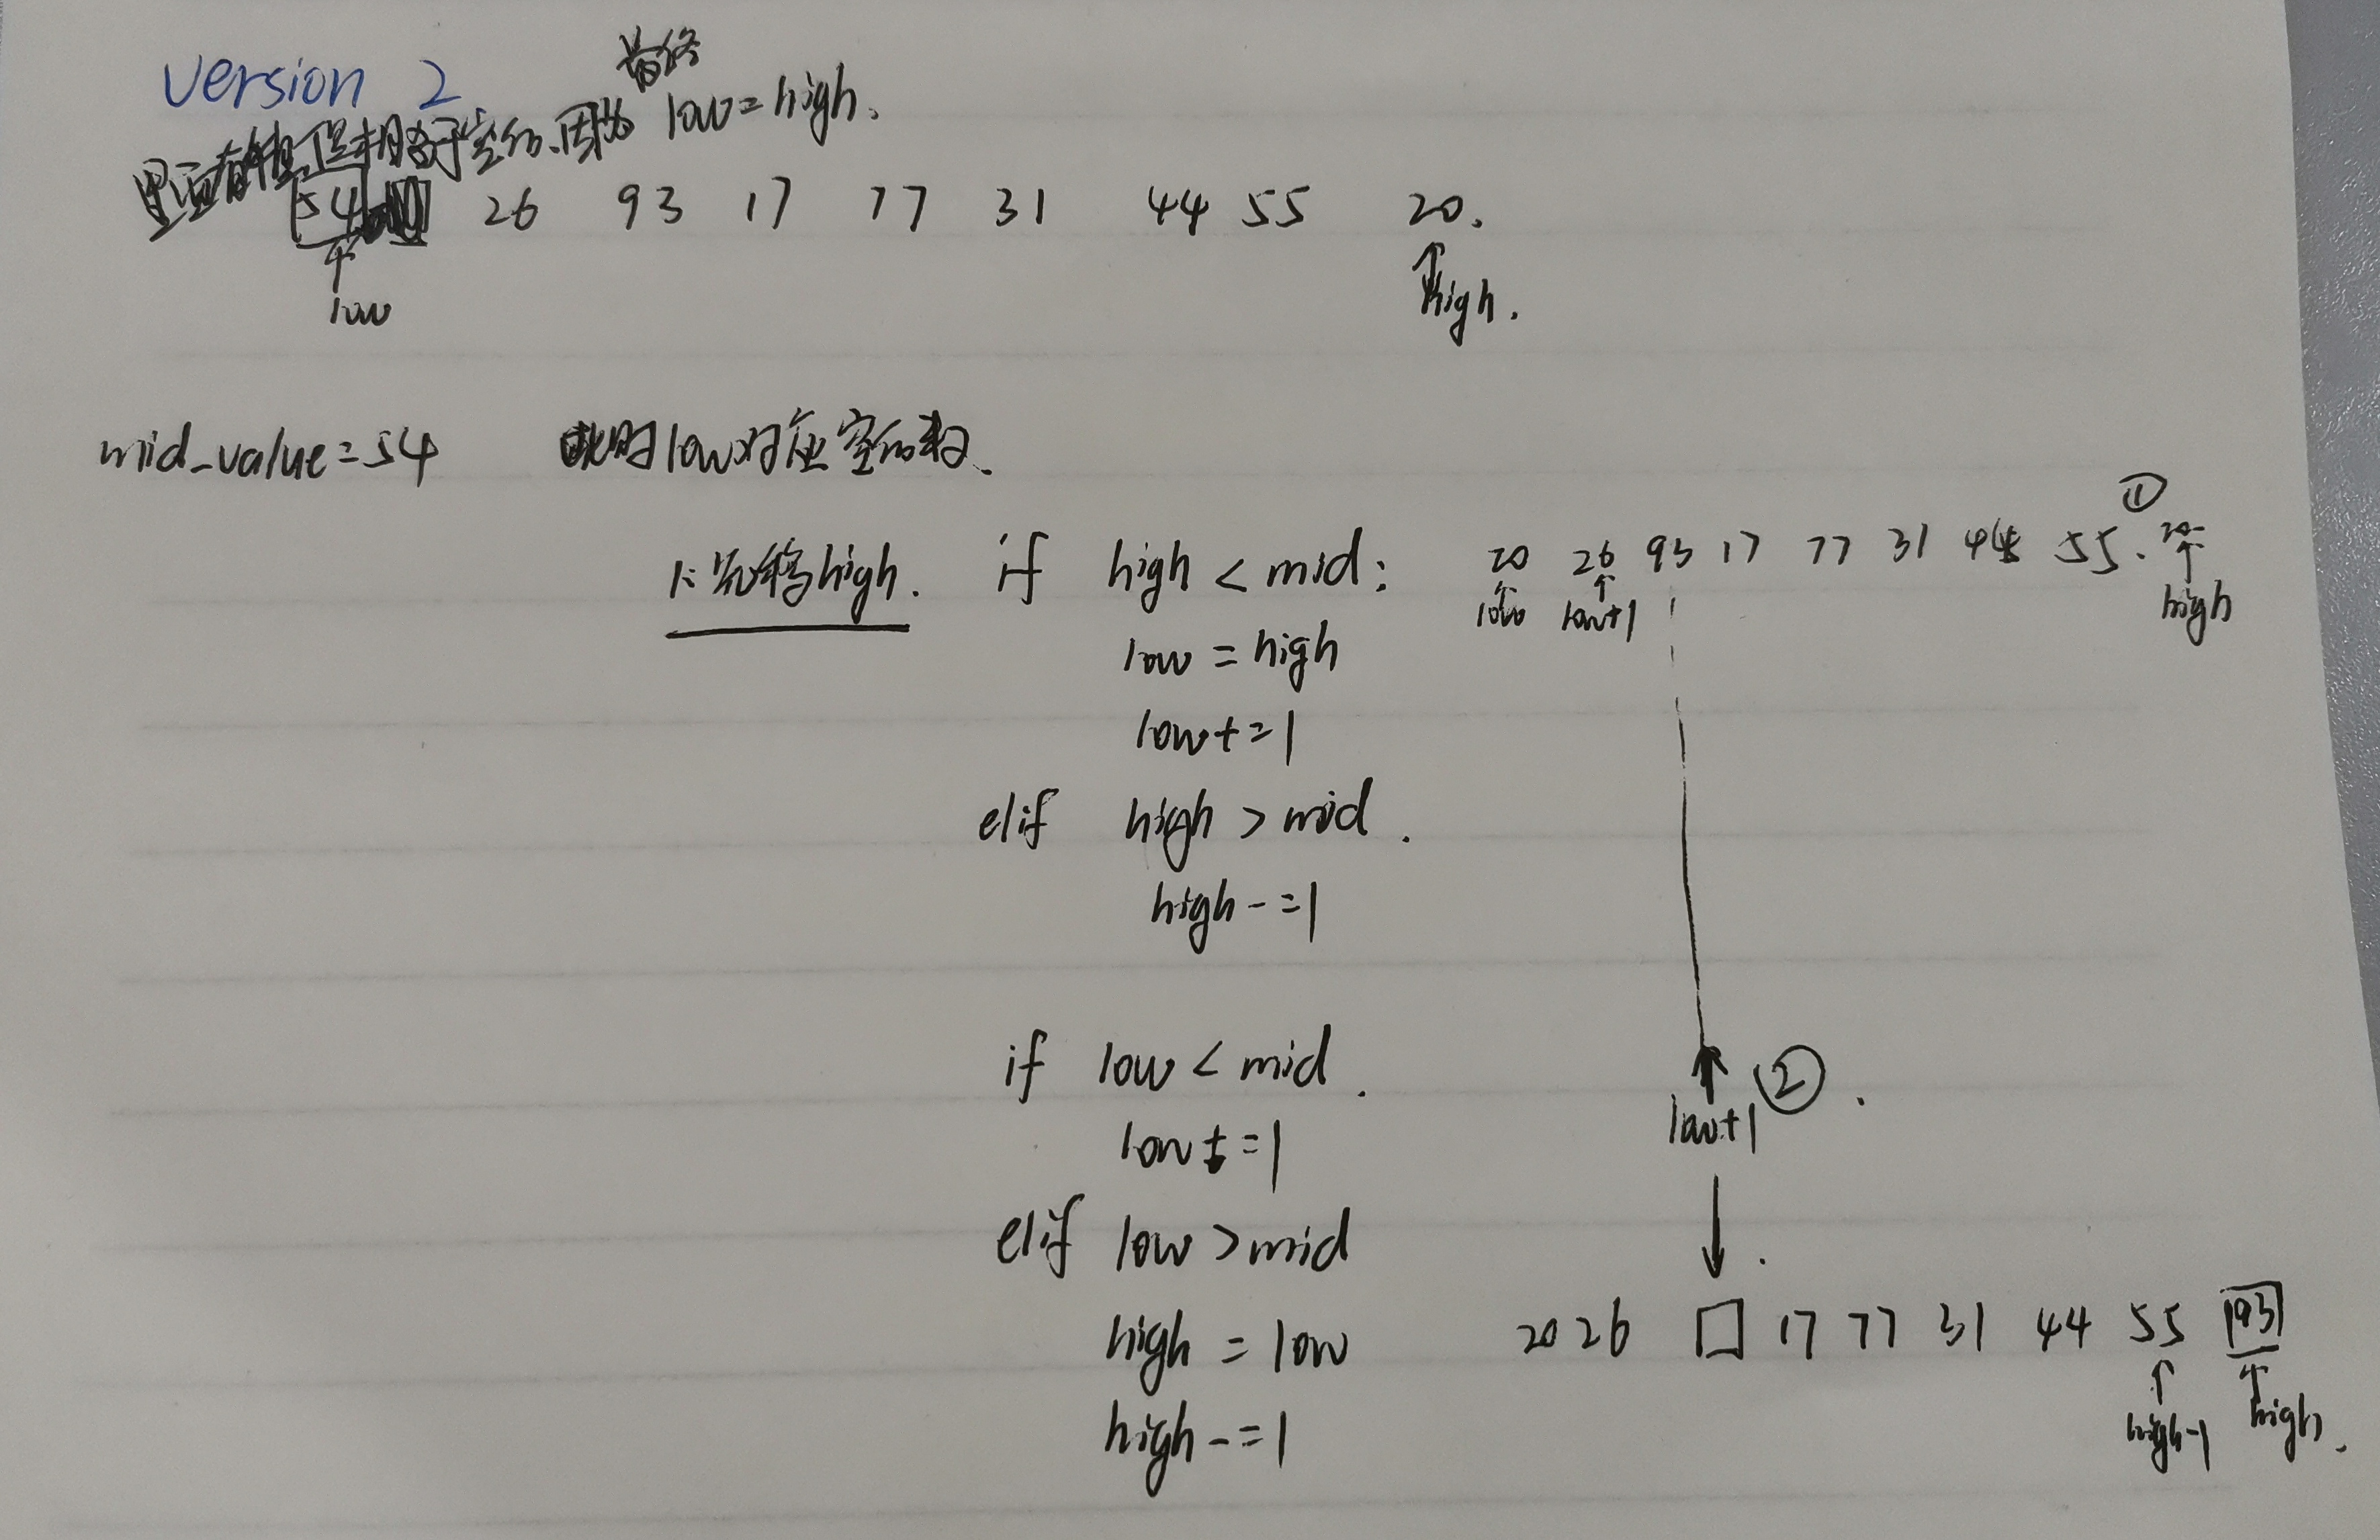 Version 2
最终
里面有值但相当于空的、因为 low = high.
54 26 93 17 77 31 44 55 20.
low high.
mid_value = 54 此时low对应空的数、
1: 先移high. if high < mid: 20 26 93 17 77 31 44 55. 20 ①
low low+1 high
low = high
low+=1
elif high > mid.
high-=1
if low < mid.
low+1 ②.
low+=1
elif low > mid
high = low 20 26 □ 17 77 31 44 55 93
high-1 high.
high-=1